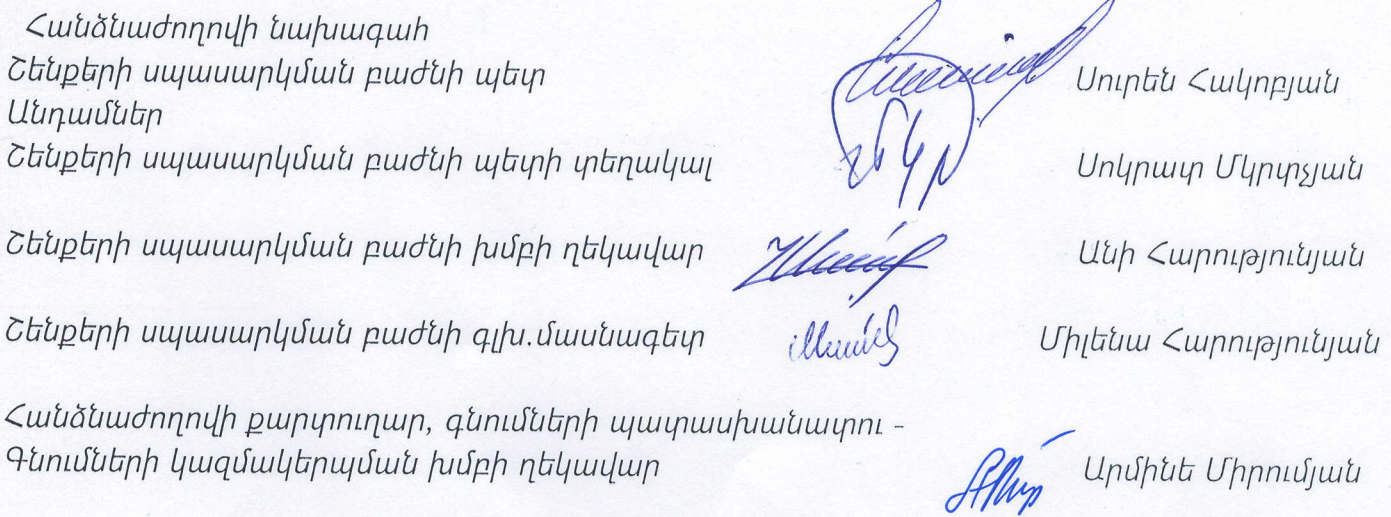 Հանձնաժողովի նախագահ
Շենքերի սպասարկման բաժնի պետ Սուրեն Հակոբյան
Անդամներ
Շենքերի սպասարկման բաժնի պետի տեղակալ Սոկրատ Մկրտչյան
Շենքերի սպասարկման բաժնի խմբի ղեկավար Անի Հարությունյան
Շենքերի սպասարկման բաժնի գլխ.մասնագետ Միլենա Հարությունյան
Հանձնաժողովի քարտուղար, գնումների պատասխանատու -
Գնումների կազմակերպման խմբի ղեկավար Արմինե Միրումյան